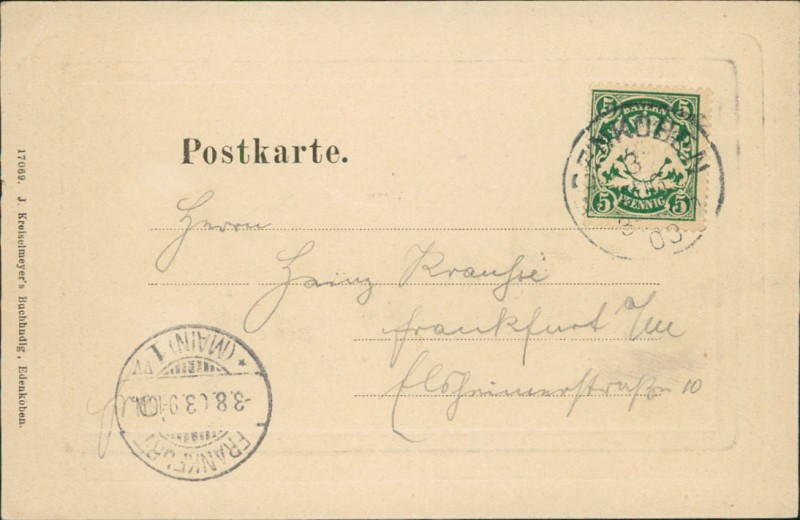 Postkarte.
5 BAYERN 5
5 PFENNIG 5
EDENKOBEN
3
03
Herrn
Heinz
Frankfurt a/M
Elsheimerstraße 10
FRANKFURT
*(MAIN) 1
3.8.03.9-10
17069. J. Kreiselmeyer's Buchhndlg, Edenkoben.